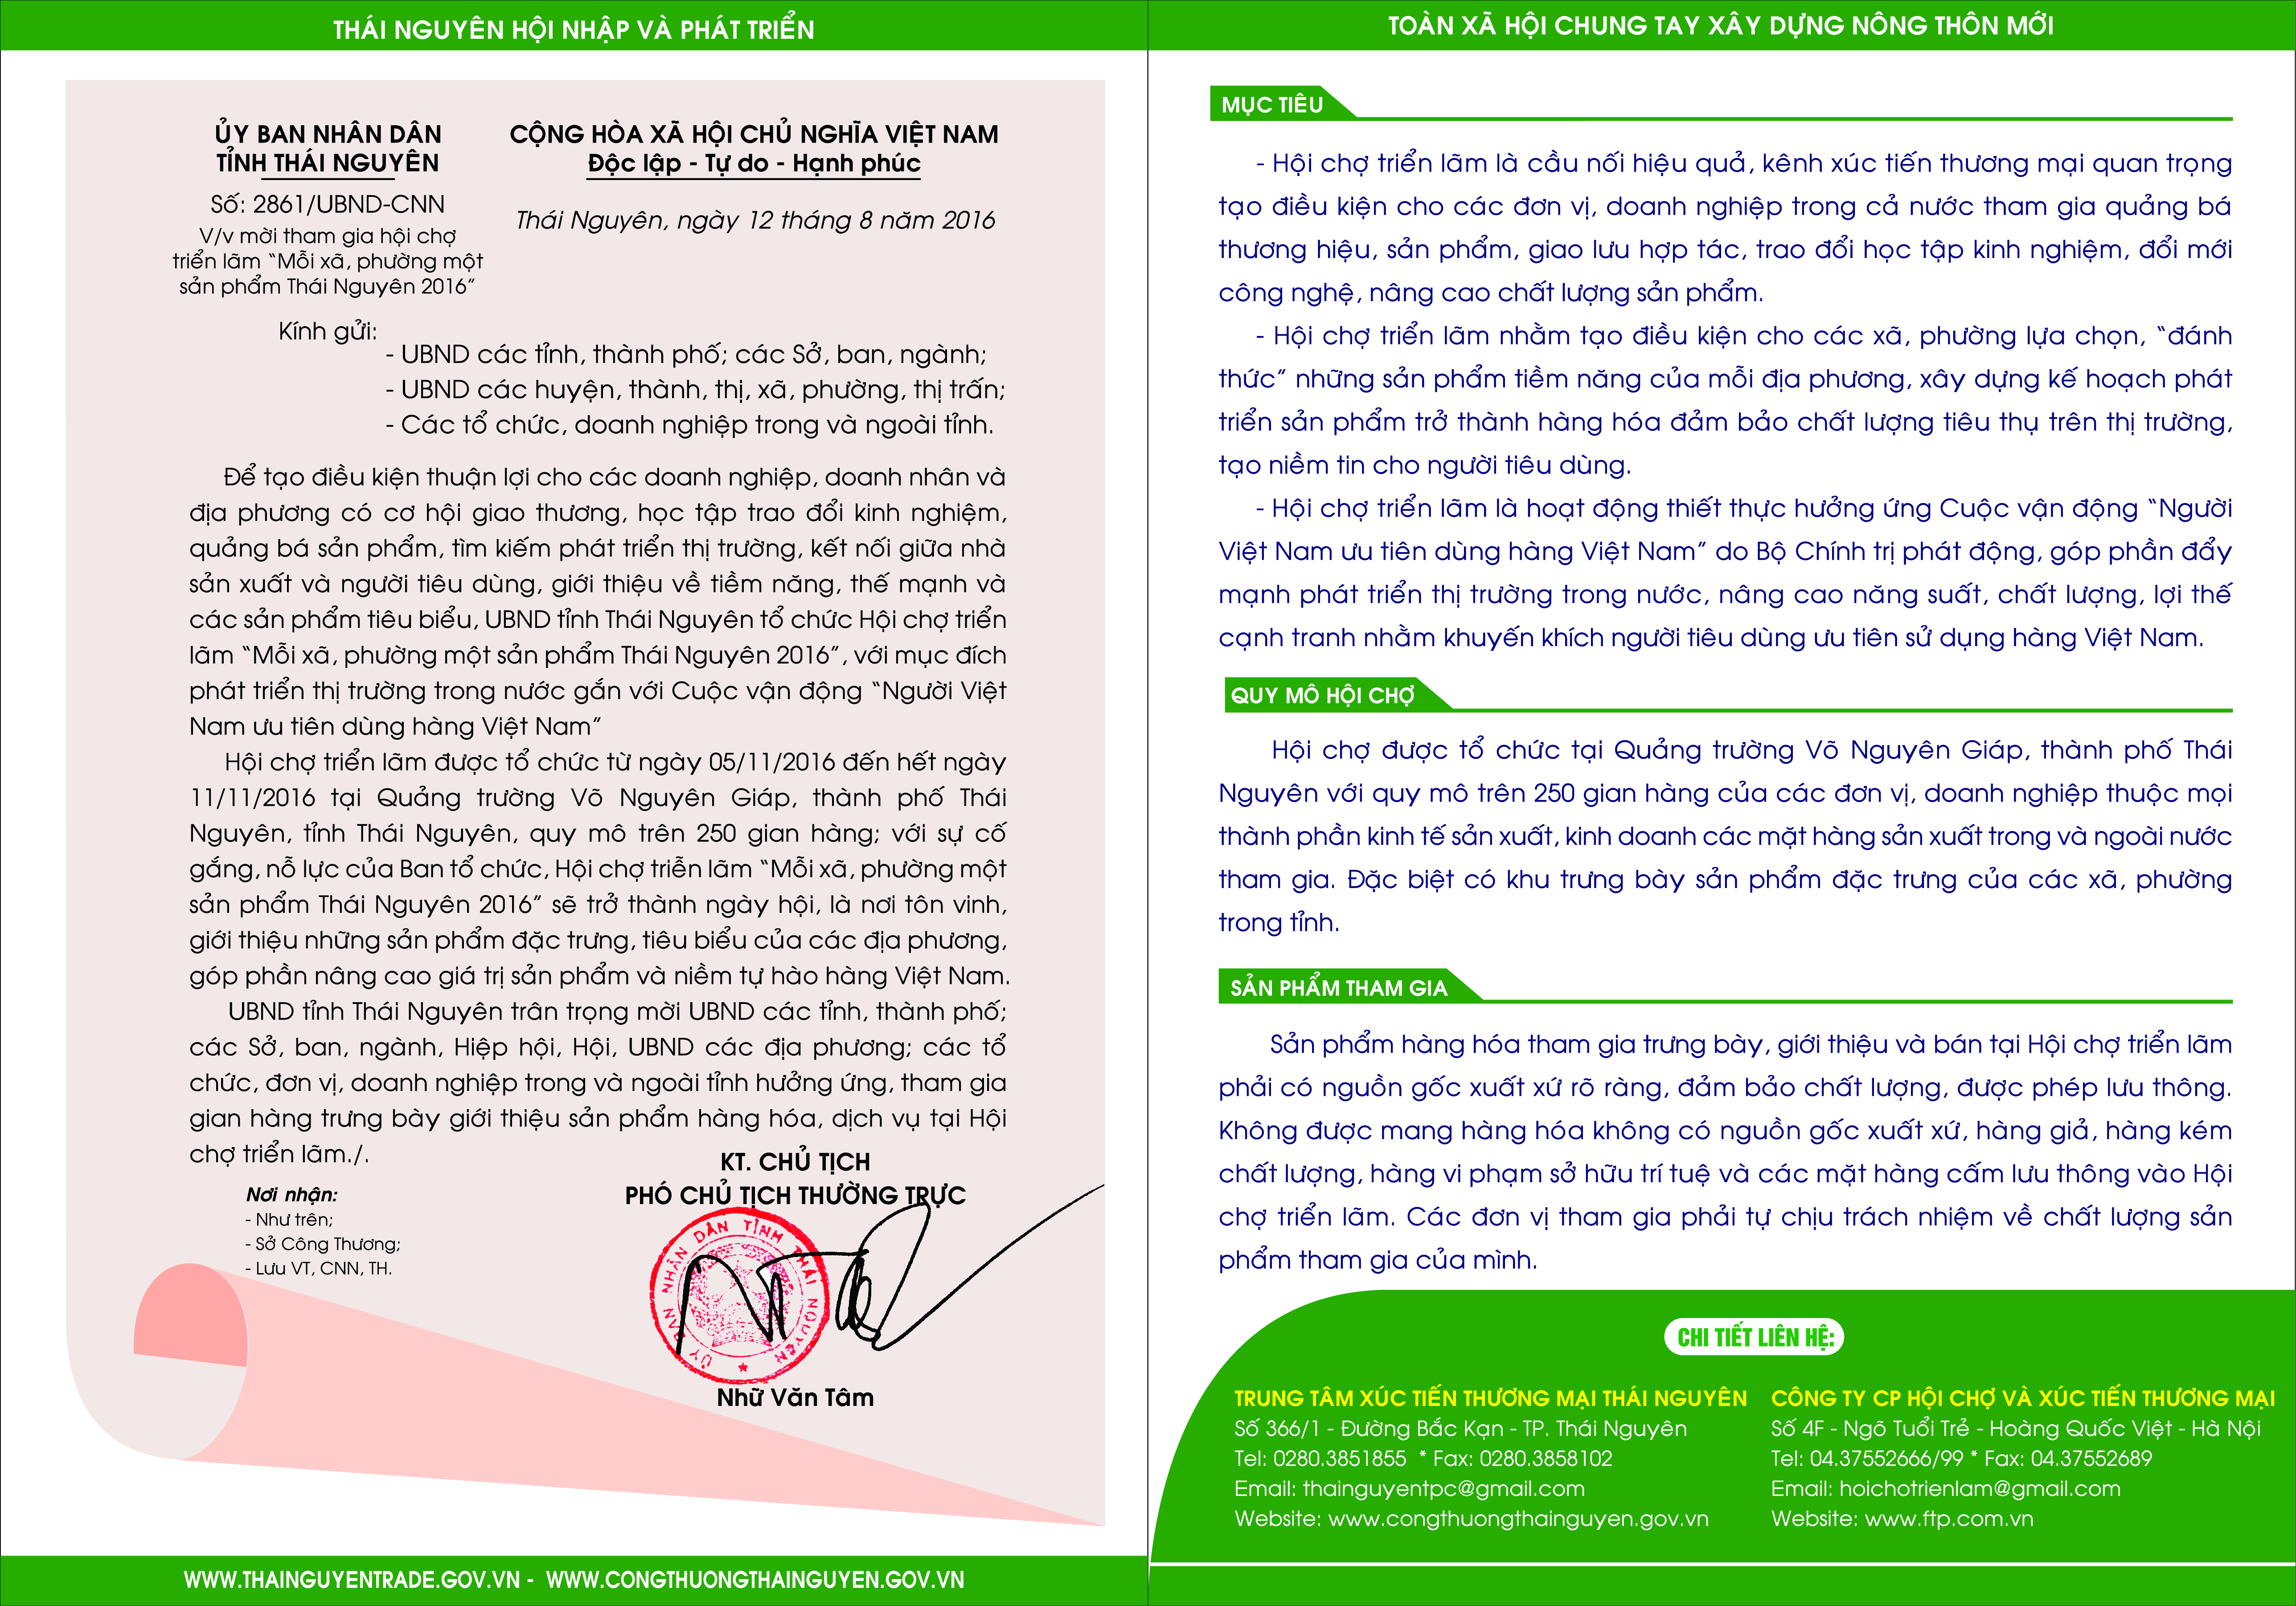 THÁI NGUYÊN HỘI NHẬP VÀ PHÁT TRIỂN
ỦY BAN NHÂN DÂN
TỈNH THÁI NGUYÊN
Số: 2861/UBND-CNN
V/v mời tham gia hội chợ
triển lãm “Mỗi xã, phường một
sản phẩm Thái Nguyên 2016”
CỘNG HÒA XÃ HỘI CHỦ NGHĨA VIỆT NAM
Độc lập - Tự do - Hạnh phúc
Thái Nguyên, ngày 12 tháng 8 năm 2016
Kính gửi:
- UBND các tỉnh, thành phố; các Sở, ban, ngành;
- UBND các huyện, thành, thị, xã, phường, thị trấn;
- Các tổ chức, doanh nghiệp trong và ngoài tỉnh.
Để tạo điều kiện thuận lợi cho các doanh nghiệp, doanh nhân và
địa phương có cơ hội giao thương, học tập trao đổi kinh nghiệm,
quảng bá sản phẩm, tìm kiếm phát triển thị trường, kết nối giữa nhà
sản xuất và người tiêu dùng, giới thiệu về tiềm năng, thế mạnh và
các sản phẩm tiêu biểu, UBND tỉnh Thái Nguyên tổ chức Hội chợ triển
lãm “Mỗi xã, phường một sản phẩm Thái Nguyên 2016”, với mục đích
phát triển thị trường trong nước gắn với Cuộc vận động “Người Việt
Nam ưu tiên dùng hàng Việt Nam”
Hội chợ triển lãm được tổ chức từ ngày 05/11/2016 đến hết ngày
11/11/2016 tại Quảng trường Võ Nguyên Giáp, thành phố Thái
Nguyên, tỉnh Thái Nguyên, quy mô trên 250 gian hàng; với sự cố
gắng, nỗ lực của Ban tổ chức, Hội chợ triễn lãm “Mỗi xã, phường một
sản phẩm Thái Nguyên 2016” sẽ trở thành ngày hội, là nơi tôn vinh,
giới thiệu những sản phẩm đặc trưng, tiêu biểu của các địa phương,
góp phần nâng cao giá trị sản phẩm và niềm tự hào hàng Việt Nam.
UBND tỉnh Thái Nguyên trân trọng mời UBND các tỉnh, thành phố;
các Sở, ban, ngành, Hiệp hội, Hội, UBND các địa phương; các tổ
chức, đơn vị, doanh nghiệp trong và ngoài tỉnh hưởng ứng, tham gia
gian hàng trưng bày giới thiệu sản phẩm hàng hóa, dịch vụ tại Hội
chợ triển lãm./.
Nơi nhận:
- Như trên;
- Sở Công Thương;
- Lưu VT, CNN, TH.
KT. CHỦ TỊCH
PHÓ CHỦ TỊCH THƯỜNG TRỰC
ỦY BAN NHÂN DÂN TỈNH THÁI NGUYÊN
Nhữ Văn Tâm
WWW.THAINGUYENTRADE.GOV.VN - WWW.CONGTHUONGTHAINGUYEN.GOV.VN
TOÀN XÃ HỘI CHUNG TAY XÂY DỰNG NÔNG THÔN MỚI
MỤC TIÊU
- Hội chợ triển lãm là cầu nối hiệu quả, kênh xúc tiến thương mại quan trọng
tạo điều kiện cho các đơn vị, doanh nghiệp trong cả nước tham gia quảng bá
thương hiệu, sản phẩm, giao lưu hợp tác, trao đổi học tập kinh nghiệm, đổi mới
công nghệ, nâng cao chất lượng sản phẩm.
- Hội chợ triển lãm nhằm tạo điều kiện cho các xã, phường lựa chọn, “đánh
thức” những sản phẩm tiềm năng của mỗi địa phương, xây dựng kế hoạch phát
triển sản phẩm trở thành hàng hóa đảm bảo chất lượng tiêu thụ trên thị trường,
tạo niềm tin cho người tiêu dùng.
- Hội chợ triển lãm là hoạt động thiết thực hưởng ứng Cuộc vận động “Người
Việt Nam ưu tiên dùng hàng Việt Nam” do Bộ Chính trị phát động, góp phần đẩy
mạnh phát triển thị trường trong nước, nâng cao năng suất, chất lượng, lợi thế
cạnh tranh nhằm khuyến khích người tiêu dùng ưu tiên sử dụng hàng Việt Nam.
QUY MÔ HỘI CHỢ
Hội chợ được tổ chức tại Quảng trường Võ Nguyên Giáp, thành phố Thái
Nguyên với quy mô trên 250 gian hàng của các đơn vị, doanh nghiệp thuộc mọi
thành phần kinh tế sản xuất, kinh doanh các mặt hàng sản xuất trong và ngoài nước
tham gia. Đặc biệt có khu trưng bày sản phẩm đặc trưng của các xã, phường
trong tỉnh.
SẢN PHẨM THAM GIA
Sản phẩm hàng hóa tham gia trưng bày, giới thiệu và bán tại Hội chợ triển lãm
phải có nguồn gốc xuất xứ rõ ràng, đảm bảo chất lượng, được phép lưu thông.
Không được mang hàng hóa không có nguồn gốc xuất xứ, hàng giả, hàng kém
chất lượng, hàng vi phạm sở hữu trí tuệ và các mặt hàng cấm lưu thông vào Hội
chợ triển lãm. Các đơn vị tham gia phải tự chịu trách nhiệm về chất lượng sản
phẩm tham gia của mình.
CHI TIẾT LIÊN HỆ:
TRUNG TÂM XÚC TIẾN THƯƠNG MẠI THÁI NGUYÊN
Số 366/1 - Đường Bắc Kạn - TP. Thái Nguyên
Tel: 0280.3851855 * Fax: 0280.3858102
Email: thainguyentpc@gmail.com
Website: www.congthuongthainguyen.gov.vn
CÔNG TY CP HỘI CHỢ VÀ XÚC TIẾN THƯƠNG MẠI
Số 4F - Ngõ Tuổi Trẻ - Hoàng Quốc Việt - Hà Nội
Tel: 04.37552666/99 * Fax: 04.37552689
Email: hoichotrienlam@gmail.com
Website: www.ftp.com.vn